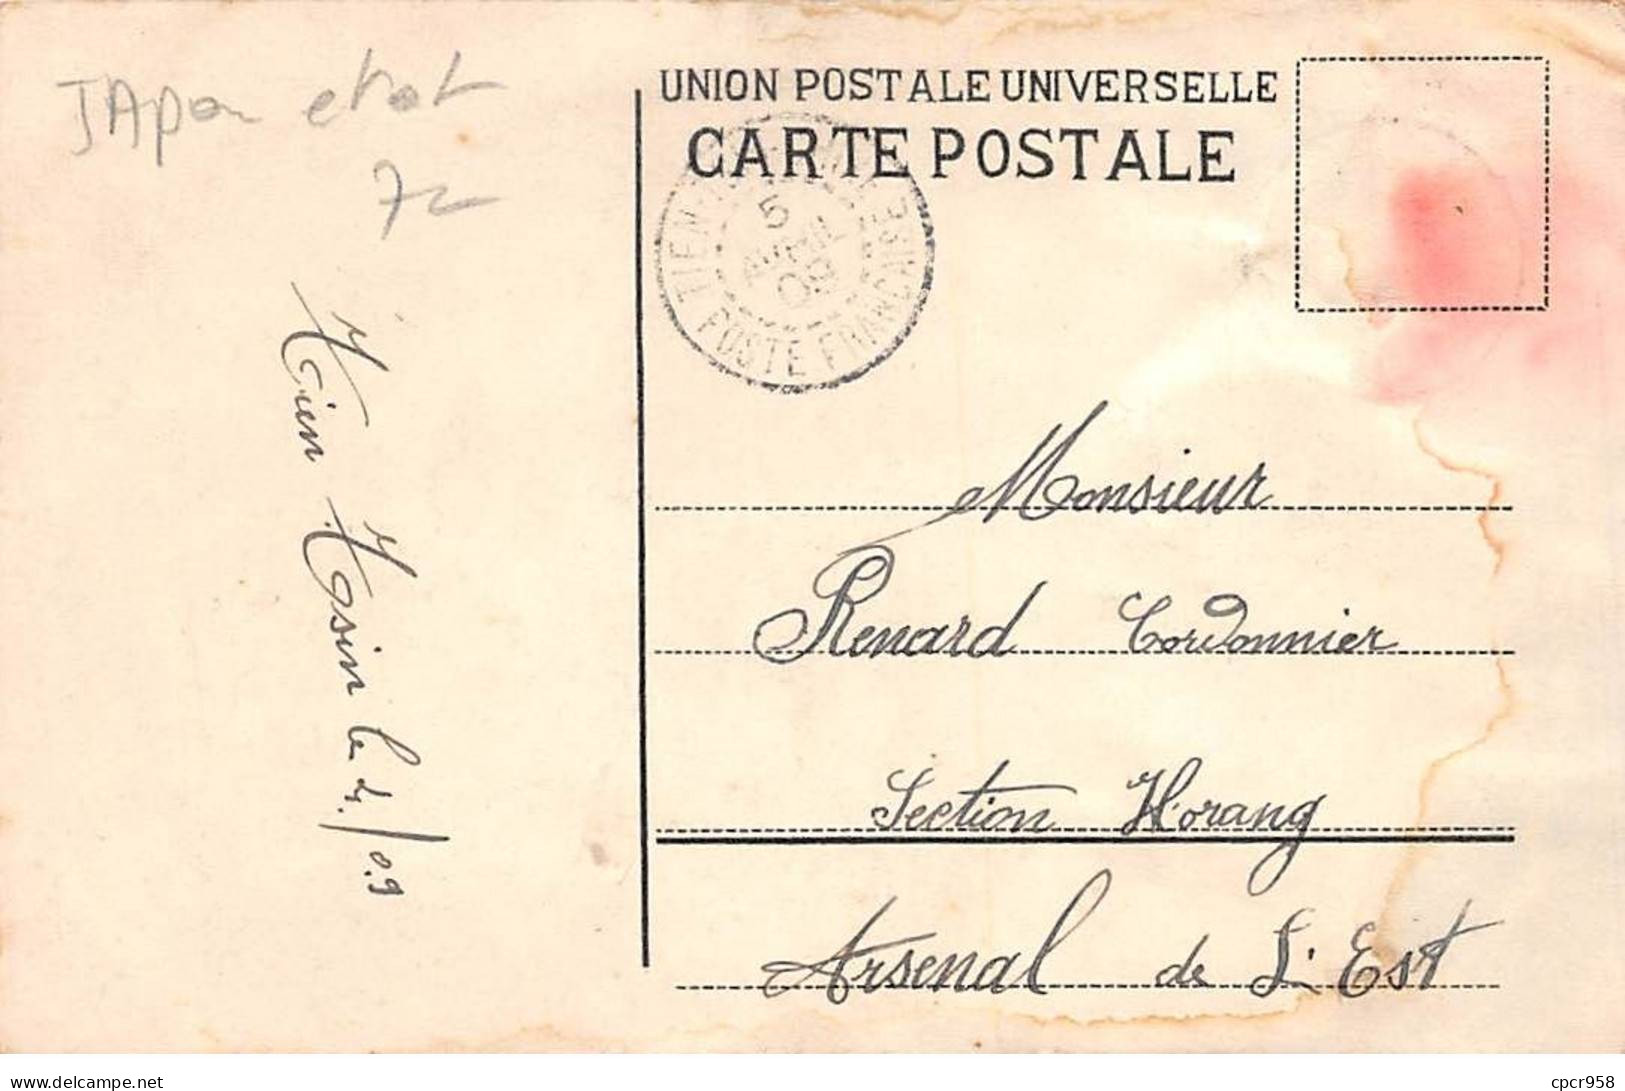 JApon etat
7
UNION POSTALE UNIVERSELLE
CARTE POSTALE
TIEN-
5
AVRIL
09
POSTE FRANÇAISE
Tien Tsin le 4/09
Monsieur
Renard Cordonnier
Section Horang
Arsenal de L'Est
www.delcampe.net
cpcr958